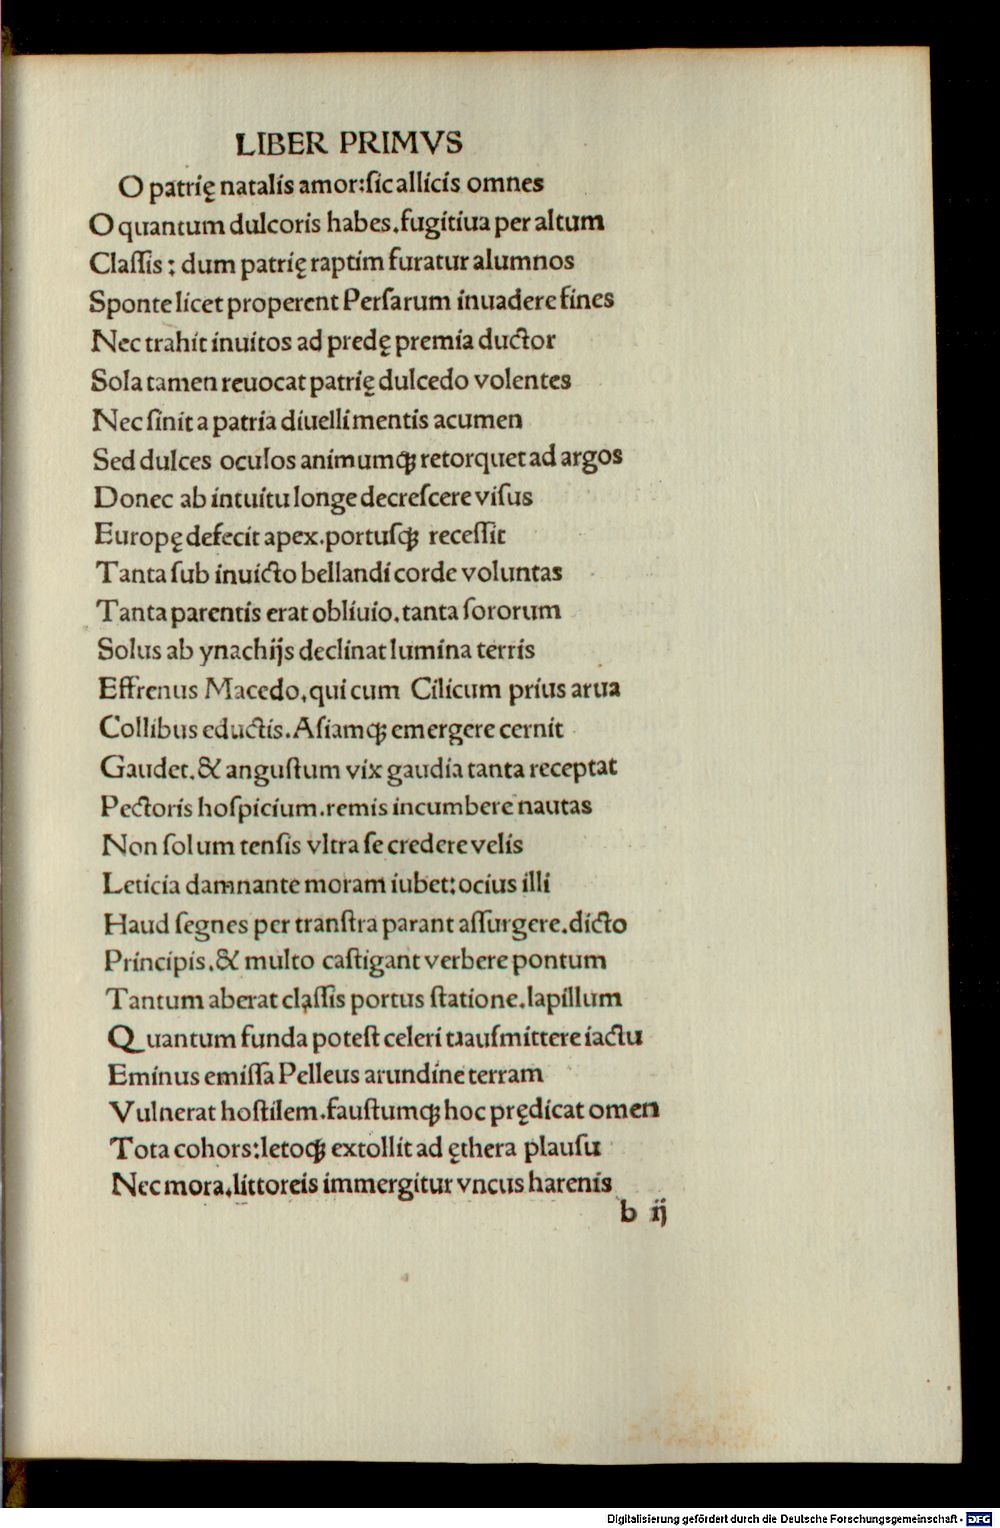 LIBER PRIMVS
O patrię natalis amor:sic allicis omnes
O quantum dulcoris habes.fugitiua per altum
Claſſis: dum patrię raptim furatur alumnos
Sponte licet properent Perſarum inuadere fines
Nec trahit inuitos ad predę premia ductor
Sola tamen reuocat patrię dulcedo volentes
Nec ſinit a patria diuelli mentis acumen
Sed dulces oculos animumqꝫ retorquet ad argos
Donec ab intuitu longe decreſcere viſus
Europę defecit apex.portuſqꝫ receſſit
Tanta ſub inuicto bellandi corde voluntas
Tanta parentis erat obliuio.tanta ſororum
Solus ab ynachijs declinat lumina terris
Effrenus Macedo.qui cum Cilicum prius arua
Collibus eductis.Aſiamqꝫ emergere cernit
Gaudet.& anguſtum vix gaudia tanta receptat
Pectoris hoſpicium.remis incumbere nautas
Non ſolum tenſis vltra ſe credere velis
Leticia damnante moram iubet:ocius illi
Haud ſegnes per tranſtra parant aſſurgere.dicto
Principis.& multo caſtigant verbere pontum
Tantum aberat claſſis portus ſtatione.lapillum
Quantum funda poteſt celeri tɹauſmittere iactu
Eminus emiſſa Pelleus arundine terram
Vulnerat hoſtilem.fauſtumqꝫ hoc prędicat omen
Tota cohors:letoqꝫ extollit ad ęthera plauſu
Nec mora.littoreis immergitur vncus harenis
b ij
Digitalisierung gefördert durch die Deutsche Forschungsgemeinschaft - DFG